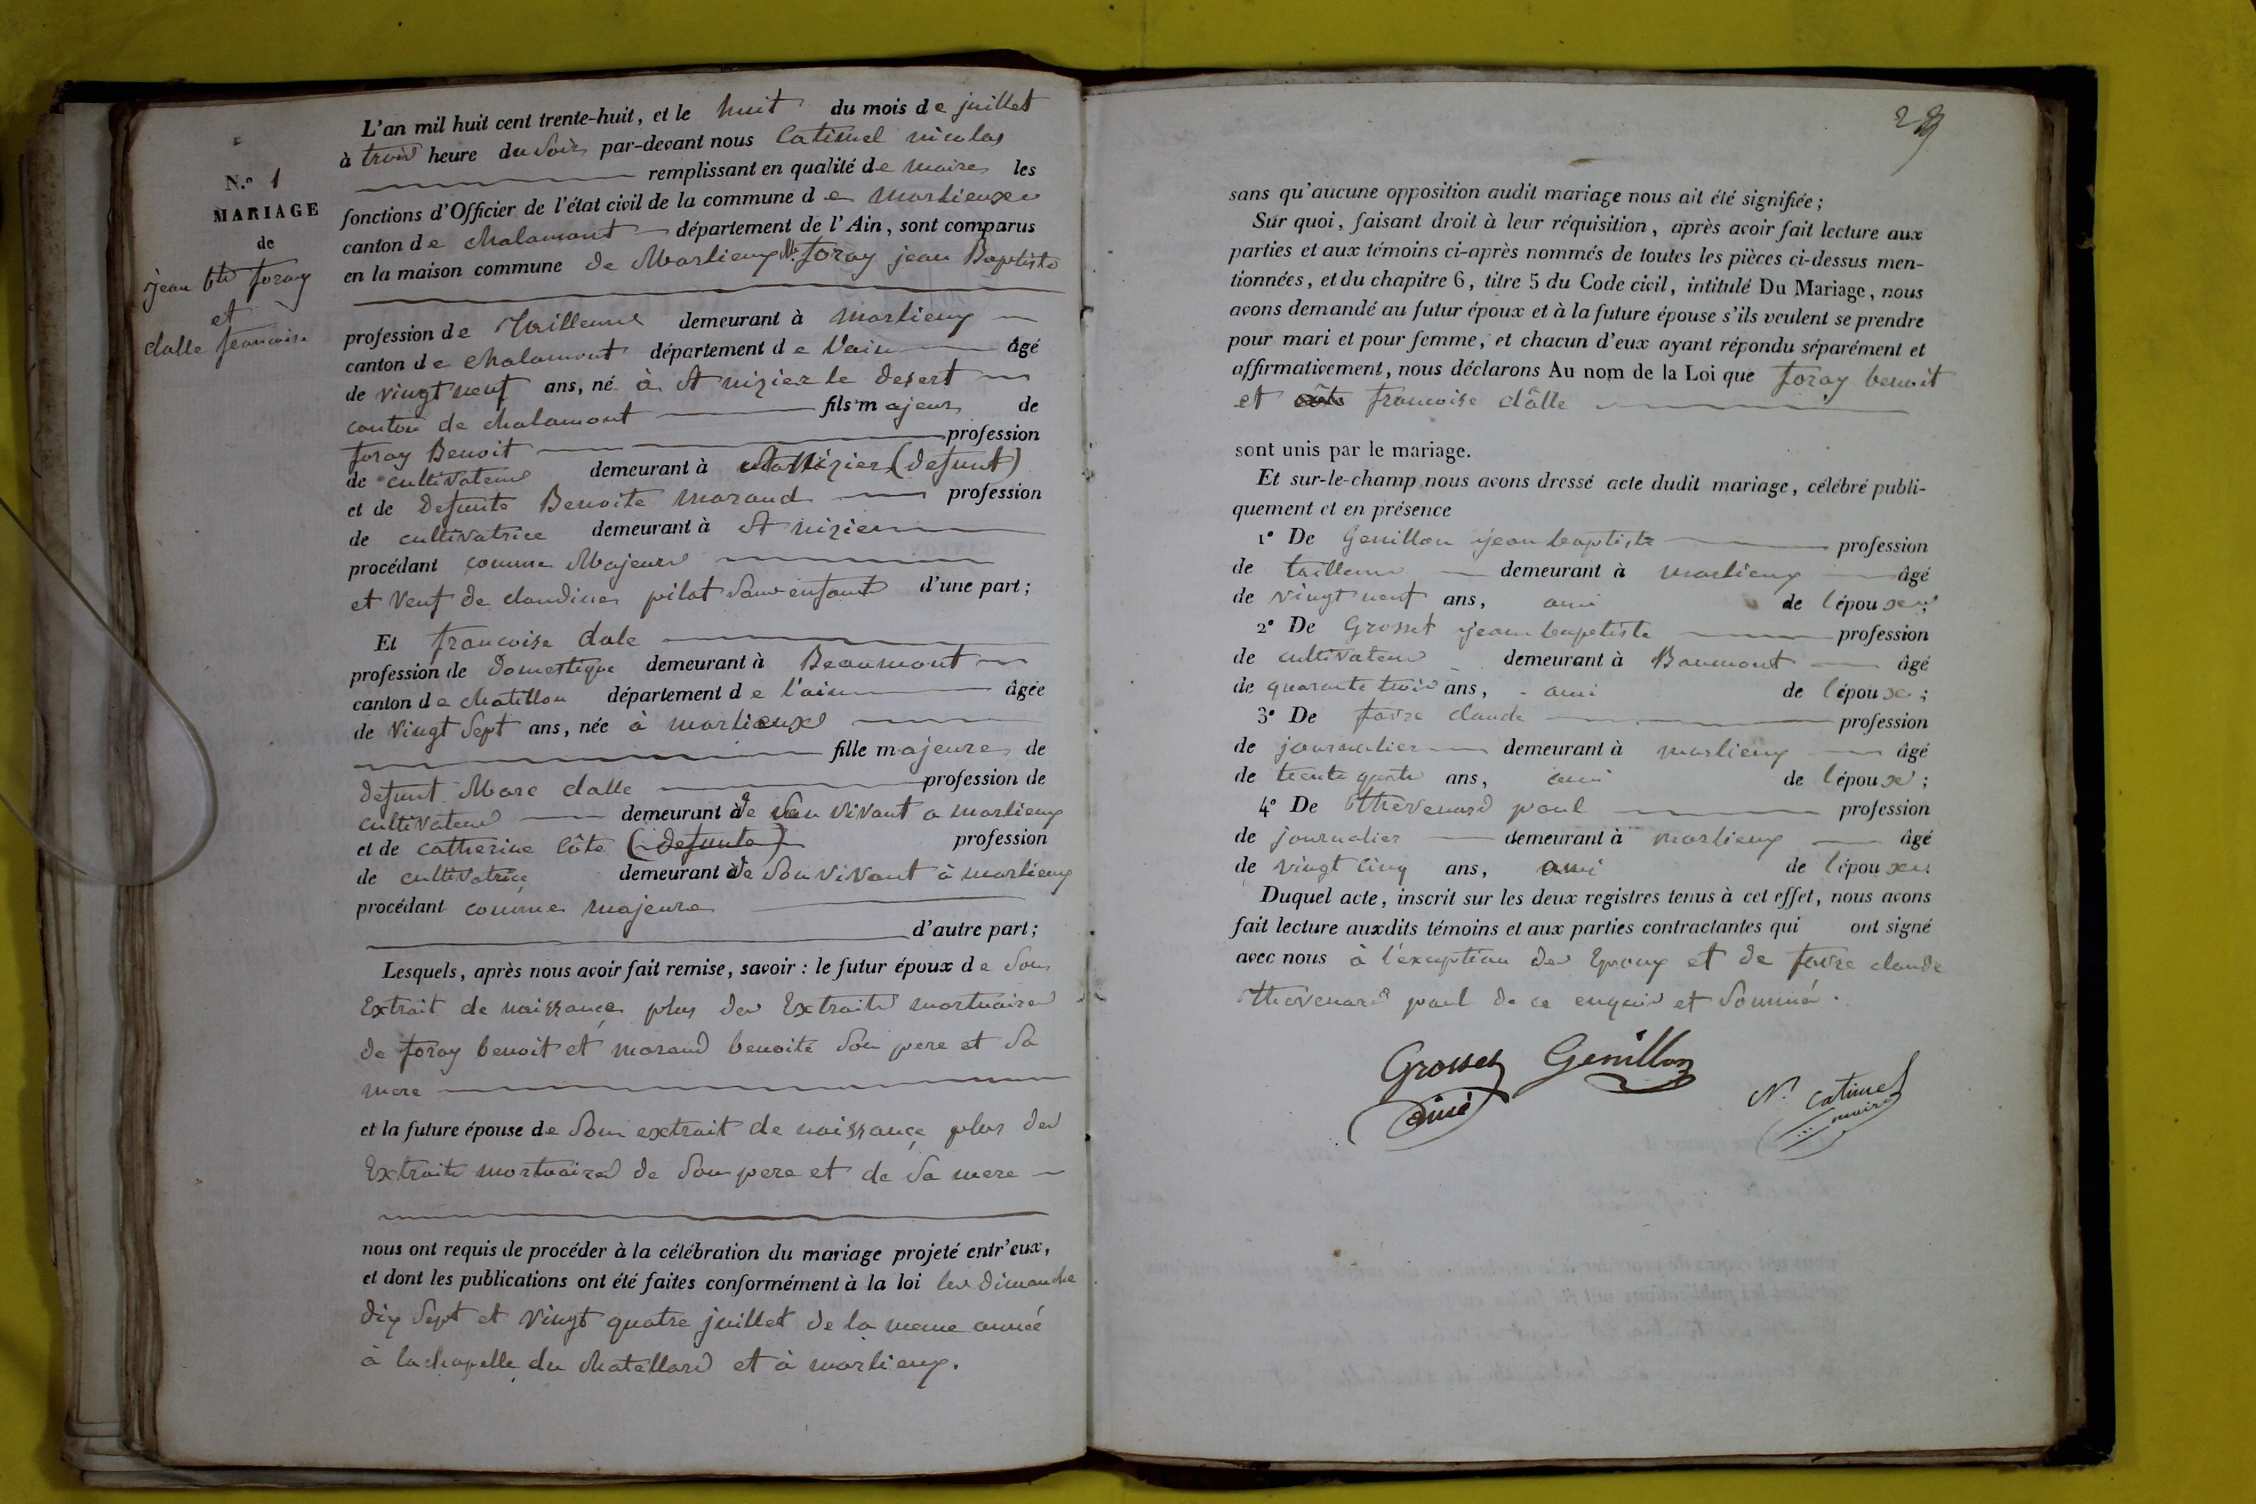 L'an mil huit cent trente-huit, et le huit du mois de juillet
à trois heure du soir par-devant nous Catimel nicolas
remplissant en qualité de maire les
fonctions d'Officier de l'état civil de la commune de marlieux
canton de chalamont département de l'Ain, sont comparus
en la maison commune de Marlieux foray jean Baptiste
N.o 1
MARIAGE
de
jean bte foray
et
dalle francoise
profession de tailleur demeurant à marlieux
canton de chalamont département de l'ain âgé
de vingt neuf ans, né à St nizier le desert
canton de chalamont fils majeur de
foray Benoit profession
de cultivateur demeurant à St Nizier (defunt)
et de defunte Benoite moraud profession
de cultivatrice demeurant à St nizier
procédant comme Majeur
et veuf de claudine pilat sans enfant d'une part;
Et francoise dale
profession de domestique demeurant à Beaumont
canton de chatillon département de l'ain âgée
de vingt sept ans, née à marlieux
fille majeure de
defunt Marc dalle profession de
cultivateur demeurant de son vivant a marlieux
et de catherine Côte (defunte) profession
de cultivatrice demeurant de son vivant à marlieux
procédant comme majeure
d'autre part;
Lesquels, après nous avoir fait remise, savoir : le futur époux de son
Extrait de naissance plus des Extraits mortuaires
de foray benoit et moraud benoite son pere et sa
mere
et la future épouse de son extrait de naissance plus des
Extraits mortuaires de son pere et de sa mere
nous ont requis de procéder à la célébration du mariage projeté entr'eux,
et dont les publications ont été faites conformément à la loi les dimanche
dix sept et vingt quatre juillet de la meme année
à lachapelle du chatellard et à marlieux.
sans qu'aucune opposition audit mariage nous ait été signifiée;
Sur quoi, faisant droit à leur réquisition, après avoir fait lecture aux
parties et aux témoins ci-après nommés de toutes les pièces ci-dessus men-
tionnées, et du chapitre 6, titre 5 du Code civil, intitulé Du Mariage, nous
avons demandé au futur époux et à la future épouse s'ils veulent se prendre
pour mari et pour femme, et chacun d'eux ayant répondu séparément et
affirmativement, nous déclarons Au nom de la Loi que foray benoit
et francoise dâlle
sont unis par le mariage.
Et sur-le-champ nous avons dressé acte dudit mariage, célébré publi-
quement et en présence
1° De Genillon jean baptiste profession
de tailleur demeurant à marlieux âgé
de vingt neuf ans, ami de l'époux;
2° De Grosset jean baptiste profession
de cultivateur demeurant à Baumont âgé
de quarante trois ans, ami de l'époux;
3° De favre claude profession
de journalier demeurant à marlieux âgé
de trente quatre ans, ami de l'époux;
4° De thevenard paul profession
de journalier demeurant à marlieux âgé
de vingt cinq ans, ami de l'époux
Duquel acte, inscrit sur les deux registres tenus à cet effet, nous avons
fait lecture auxdits témoins et aux parties contractantes qui ont signé
avec nous à l'exception des Epoux et de favre claude
thevenard paul de ce enquis et sommé.
Grosset Genillon
ainé
N. catimel
maire